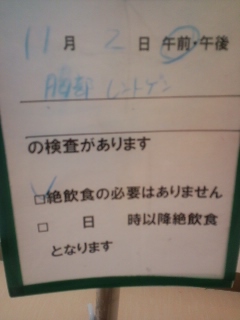 11月2日 午前・午後
胸部 レントゲン
の検査があります
☑絶飲食の必要はありません
□ 日 時以降絶飲食
となります